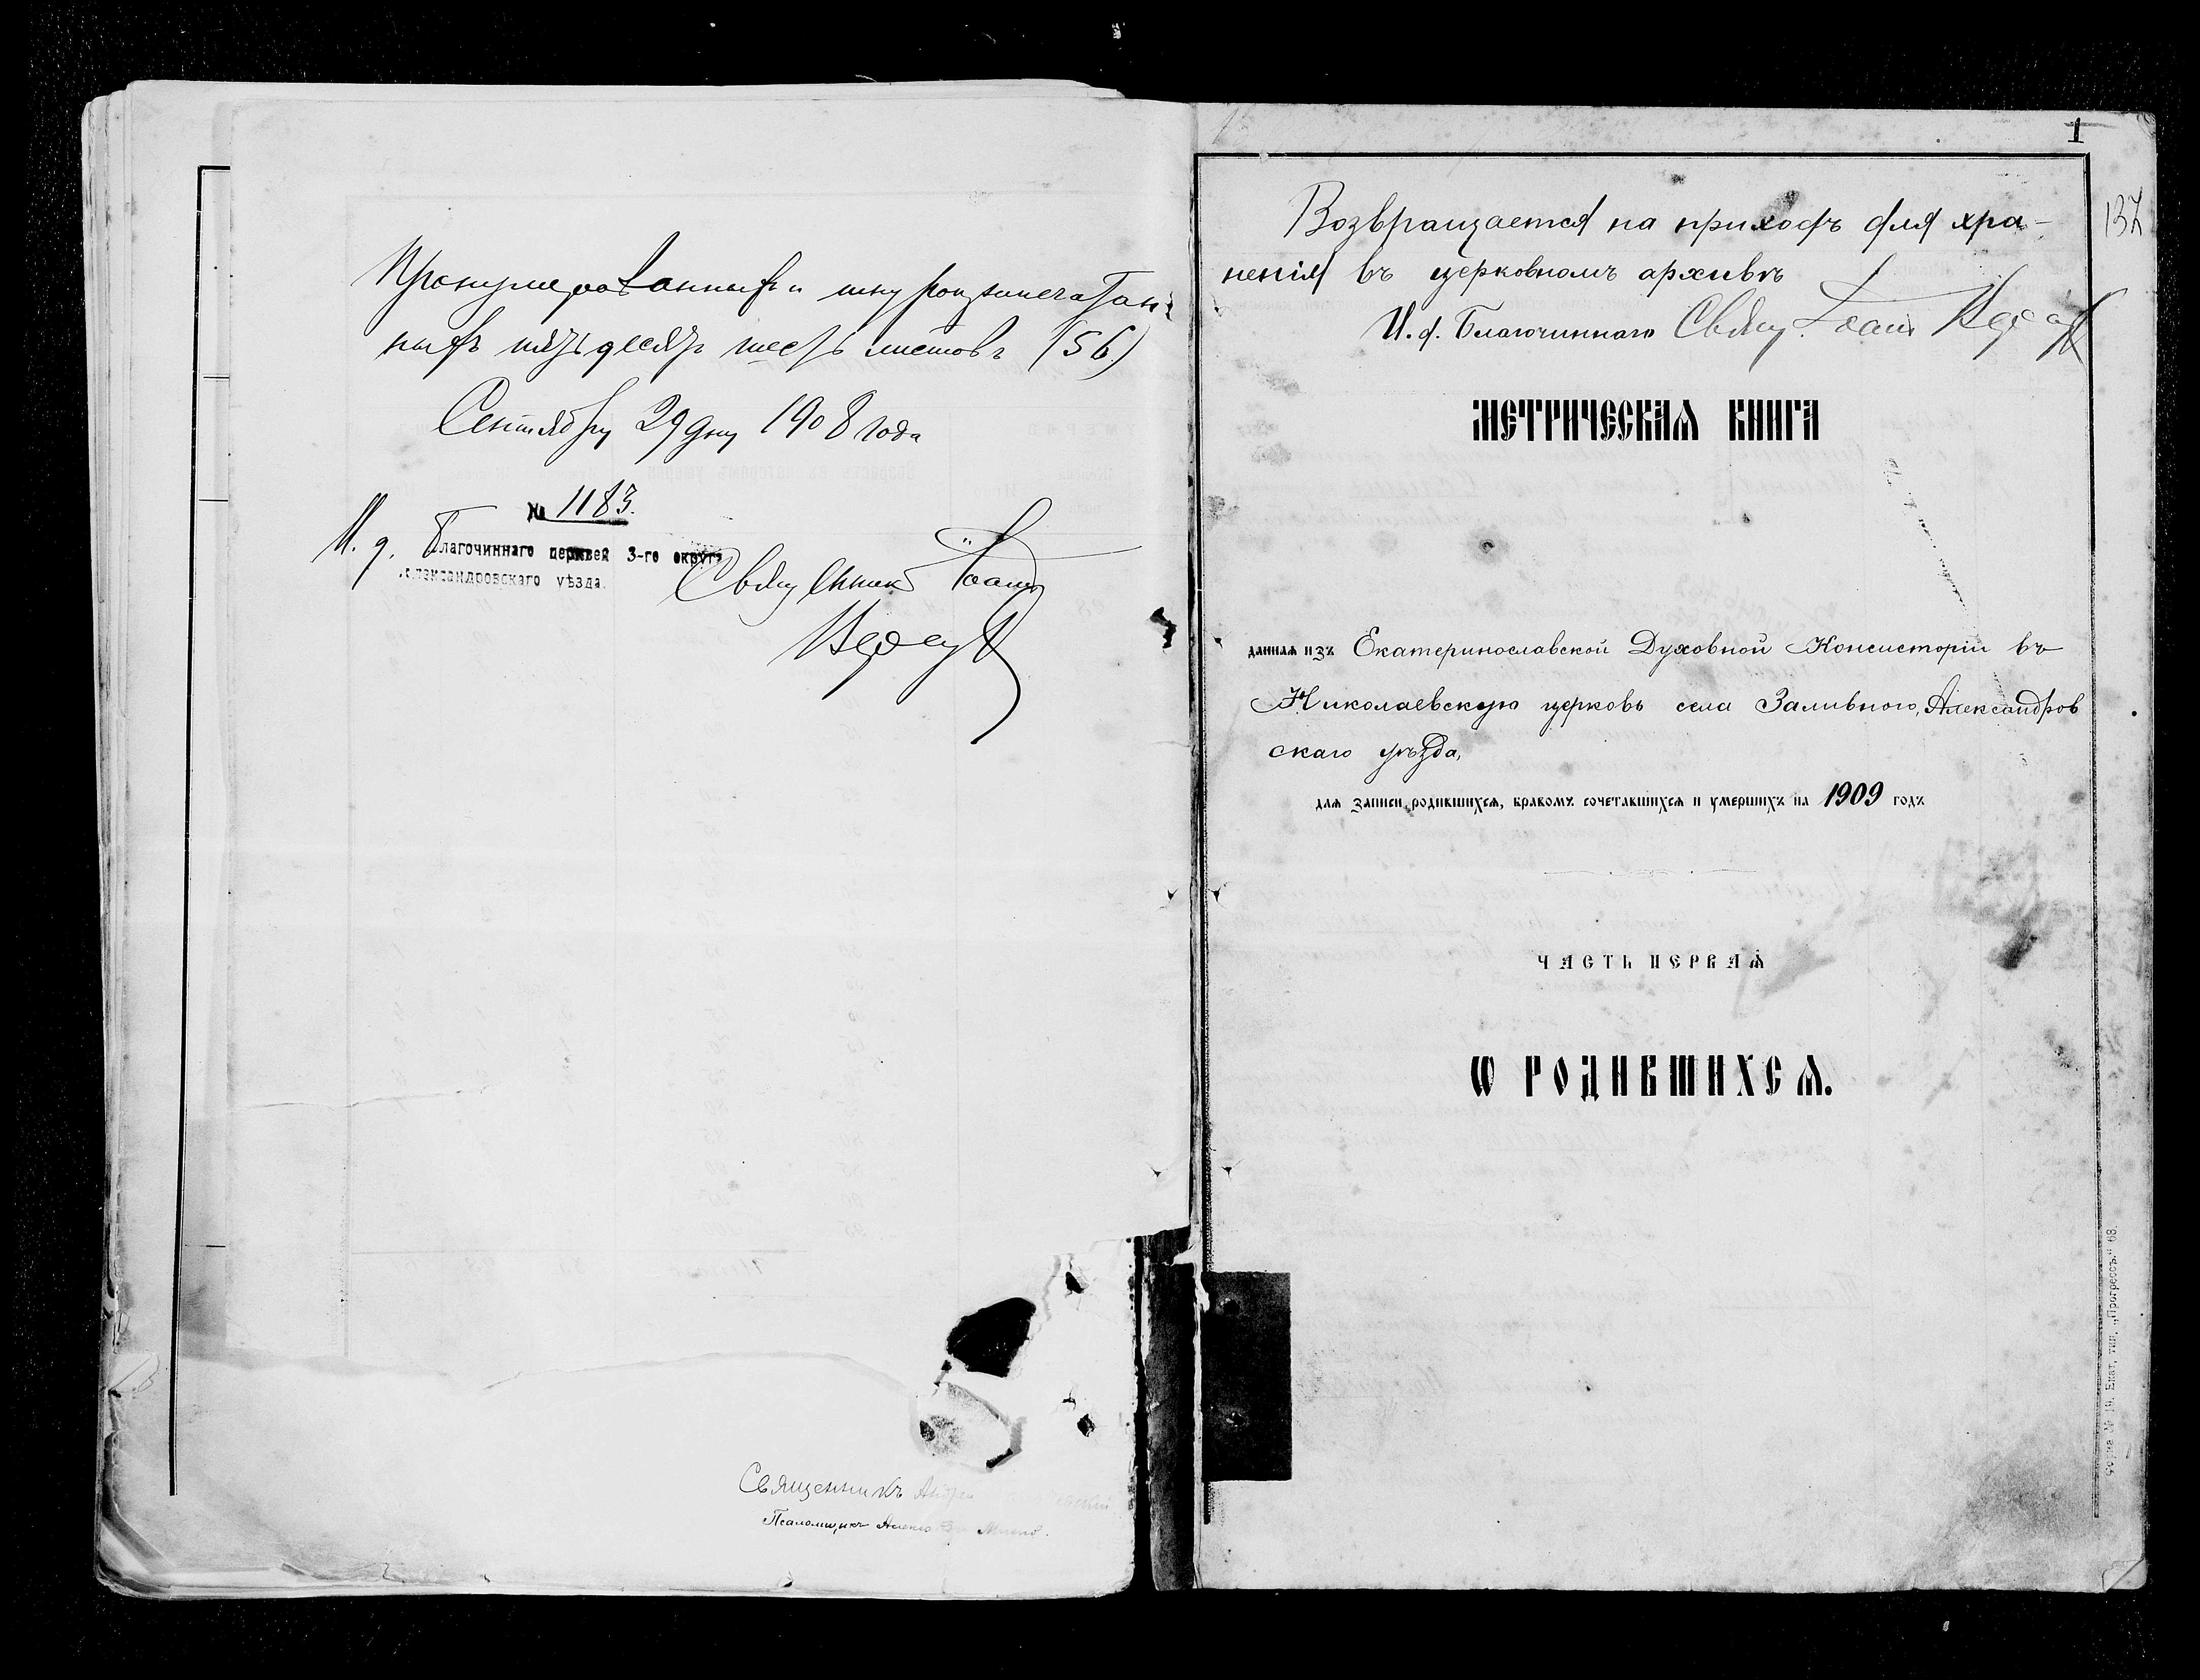 Пронумерованныхъ и шнурозапечатан-
ныхъ пятьдесятъ шесть листовъ (56)
Сентября 29 дня 1908 года
№ 1183.
И. д. Благочиннаго церквей 3-го округа
Александровскаго уѣзда.
Священникъ Іоаннъ
Священникъ Андрей
Псаломщикъ
1
137
Возвращается на приходъ для хра-
ненія въ церковномъ архивѣ
И. д. Благочиннаго Свящ. Іоаннъ
МЕТРИЧЕСКАѦ КНИГА
даннаѧ изъ Екатеринославской Духовной Консисторіи въ
Николаевскую церковь села Заливного, Александров
скаго уѣзда,
длѧ записи родившихсѧ, бракомъ сочетавшихсѧ и умершихъ на 1909 годъ
ЧАСТЬ ПЕРВАѦ
Ѡ РОДИВШИХСѦ.
Форма № 19. Екат., тип. „Прогрессъ“ 68.